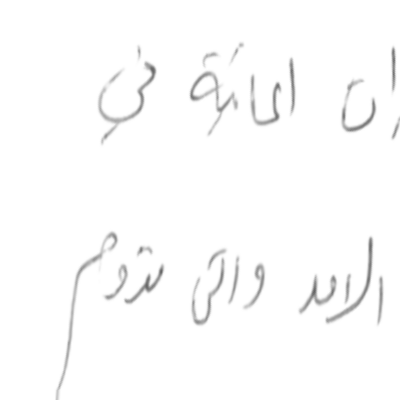 ان اعانة في
الامد والتي تدوم